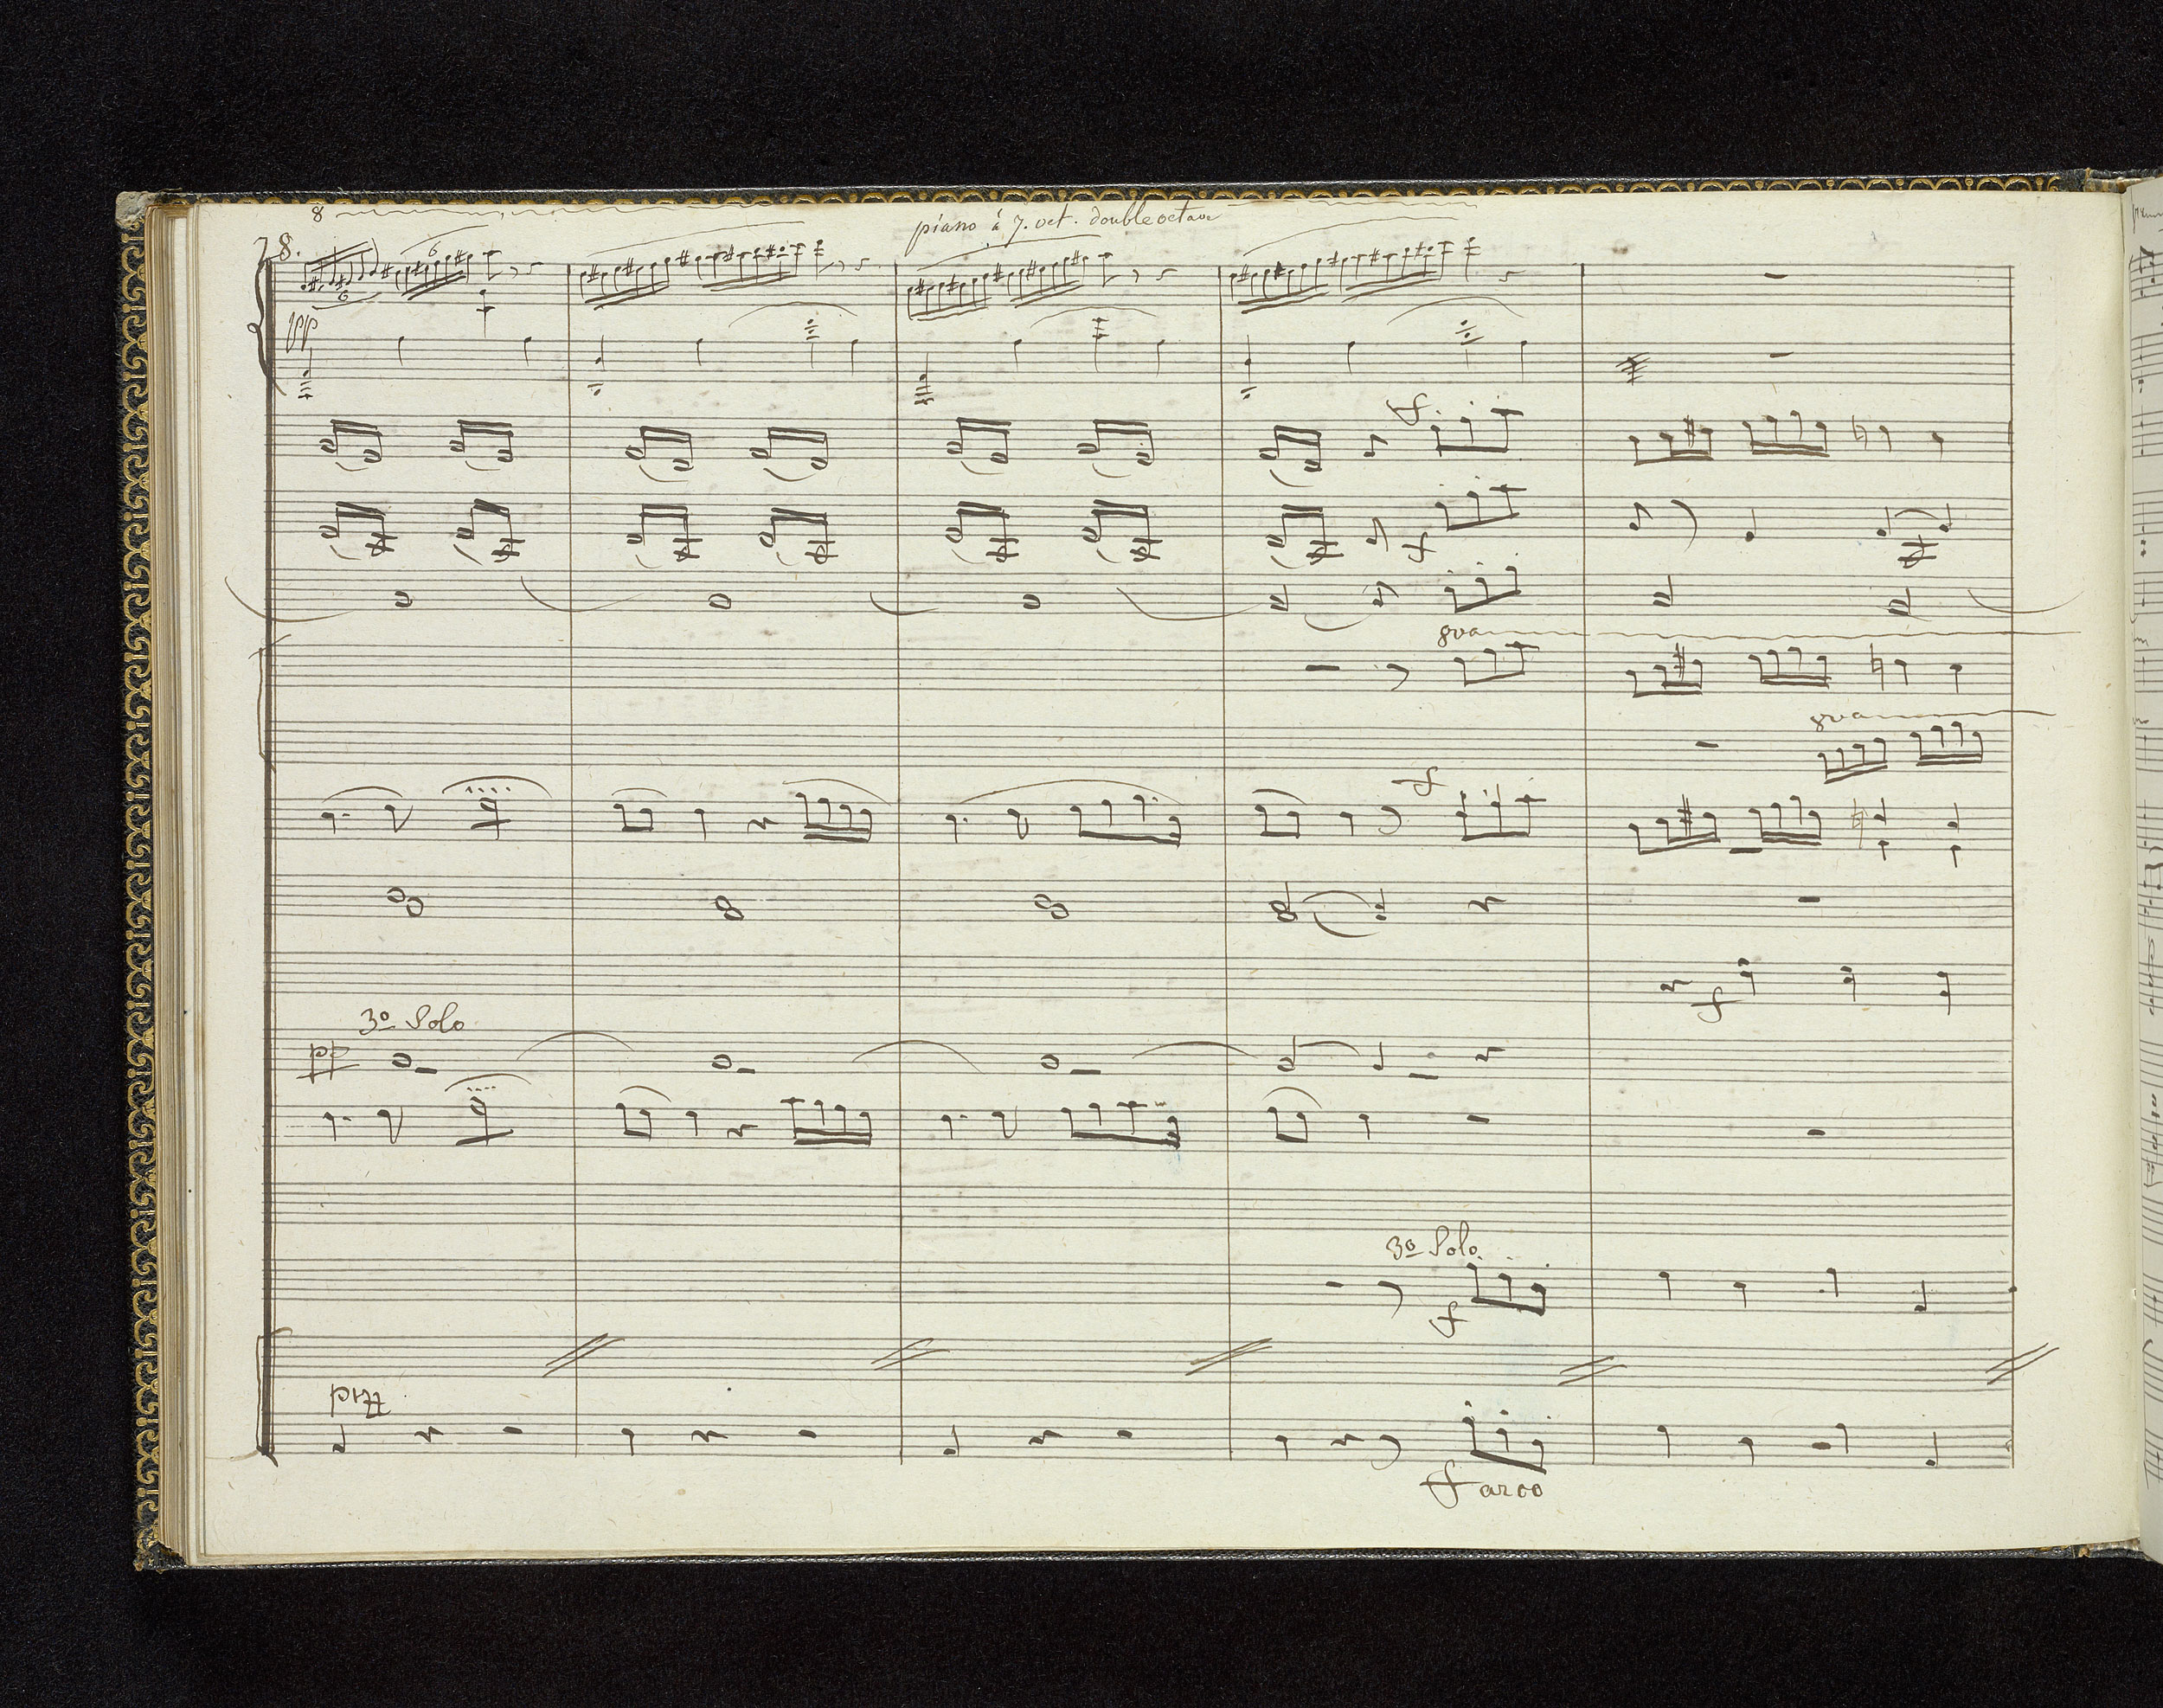 8
78.
piano á 7. oct. double octave
6
6
pp
f
f
8va
8va
f
f
3o Solo
pp
3o Solo
f
pizz
f arco